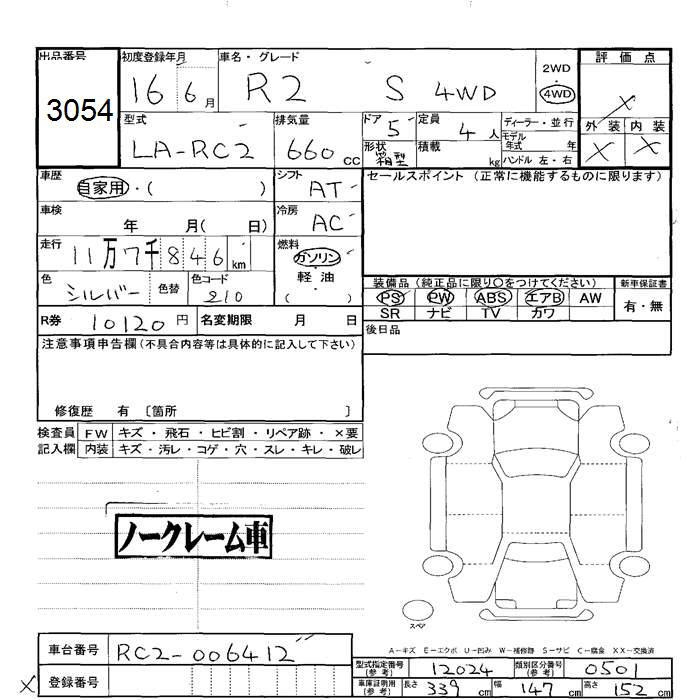 出品番号 初度登録年月 車名・グレード 評価点
3054 16 6月 R2 S 4WD 2WD 4WD X
外装 内装
X X
型式 排気量 ドア 5 定員 4人 ディーラー・並行
LA-RC2 660cc 形状 箱型 積載 kg モデル年式 年
ハンドル 左・右
車歴 自家用・( ) シフト AT セールスポイント (正常に機能するものに限ります)
車検 年 月( 日) 冷房 AC
走行 11万7千846km 燃料 ガソリン
軽・油
( )
色 シルバー 色替 色コード 210
装備品(純正品に限り〇をつけてください) 新車保証書
PS PW ABS エアB AW 有・無
SR ナビ TV カワ
R券 10120円 名変期限 月 日 後日品
注意事項申告欄(不具合内容等は具体的に記入して下さい)
修復歴 有 〔箇所 〕
検査員 FW キズ・飛石・ヒビ割・リペア跡・×要
記入欄 内装 キズ・汚レ・コゲ・穴・スレ・キレ・破レ
ノークレーム車
スペア
A−キズ E−エクボ U−凹み W−補修跡 S−サビ C−腐食 XX−交換済
車台番号 RC2-006412
X 登録番号
型式指定番号(参考) 12024 類別区分番号(参考) 0501
車庫証明用(参考) 長さ 339cm 幅 147cm 高さ 152cm